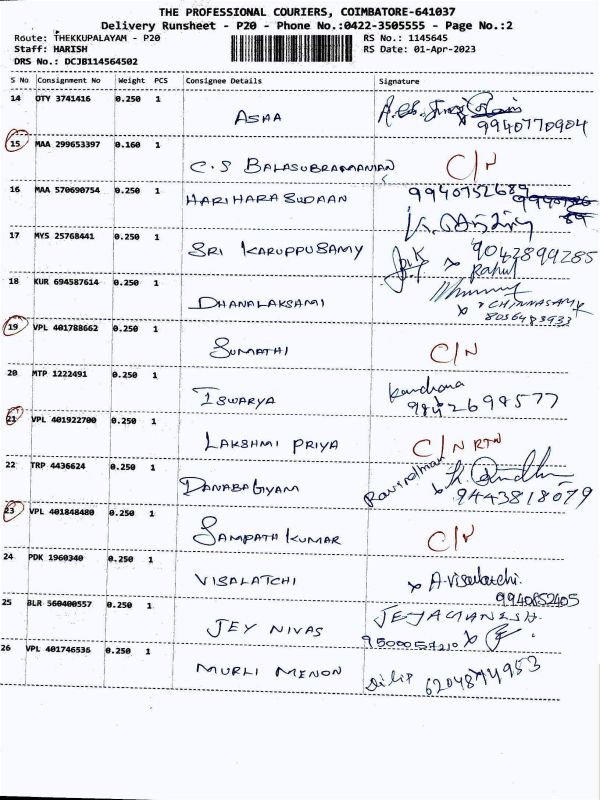 THE PROFESSIONAL COURIERS, COIMBATORE-641037
Delivery Runsheet - P20 - Phone No.:0422-3505555 - Page No.:2
Route: THEKKUPALAYAM - P20 RS No.: 1145645
Staff: HARISH RS Date: 01-Apr-2023
DRS No.: DCJB114564502
S No Consignment No Weight PCS Consignee Details Signature
14 OTY 3741416 0.250 1 ASAA
9940770904
15 MAA 299653397 0.160 1 C.S BALASUBRAMANIAN C/N
16 MAA 570690754 0.250 1 HARIHARASUDAAN 9940752689
89
17 MYS 25768441 0.250 1 SRI KARUPPUSAMY 9042899285
Rahul
18 KUR 694587614 0.250 1 DHANALAKSAMI
CHINNASAMY
8056483933
19 VPL 401788662 0.250 1 SUMATHI C/N
20 MTP 1222491 0.250 1 ISWARYA Kandhana
9842698577
21 VPL 401922700 0.250 1 LAKSHMI PRIYA C/N RTN
22 TRP 4436624 0.250 1 DANABAGIYAM
9443818079
23 VPL 401848480 0.250 1 SAMPATH KUMAR C/N
24 PDK 1960340 0.250 1 VISALATCHI x A.Visalatchi.
9940852405
25 BLR 560400557 0.250 1 JEY NIVAS JEJAGANESH.
9500057210 x
26 VPL 401746536 0.250 1 MURLI MENON Dilip 6204874953